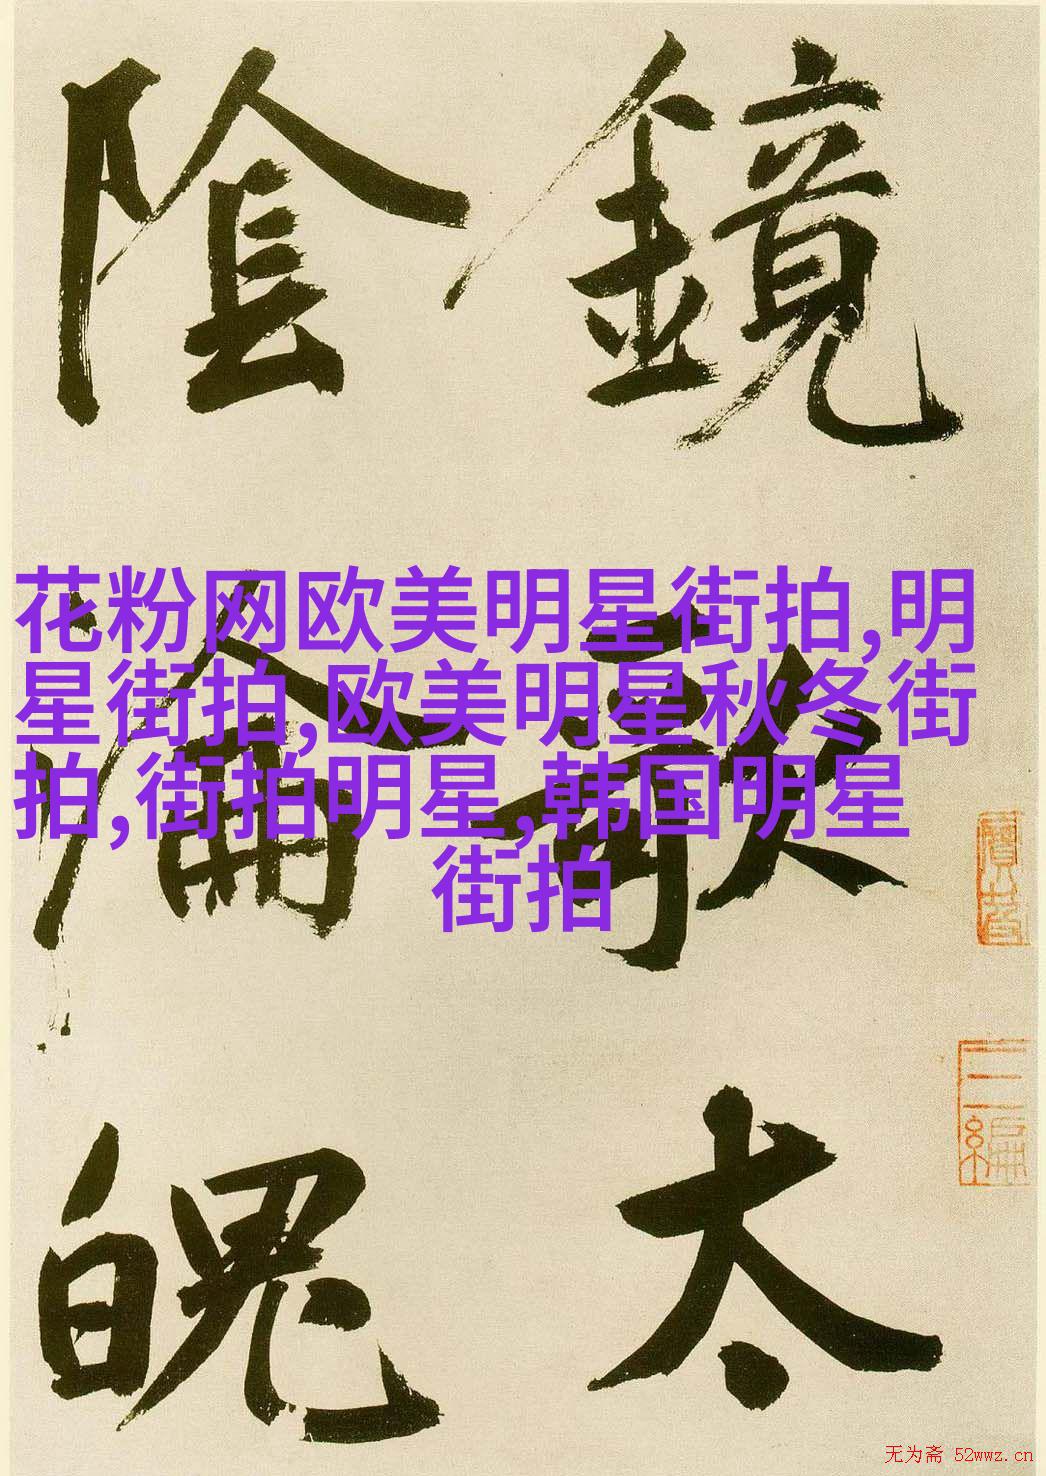 鏡
太
陰
淪
魄
花粉网欧美明星街拍,明
星街拍,欧美明星秋冬街
拍,街拍明星,韩国明星
街拍
三編
无为斋 52wwz.cn